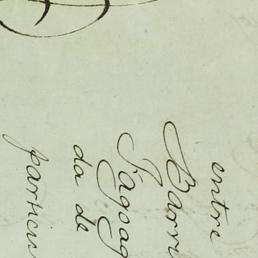 entre
Barri
Sagoag
da de
particu